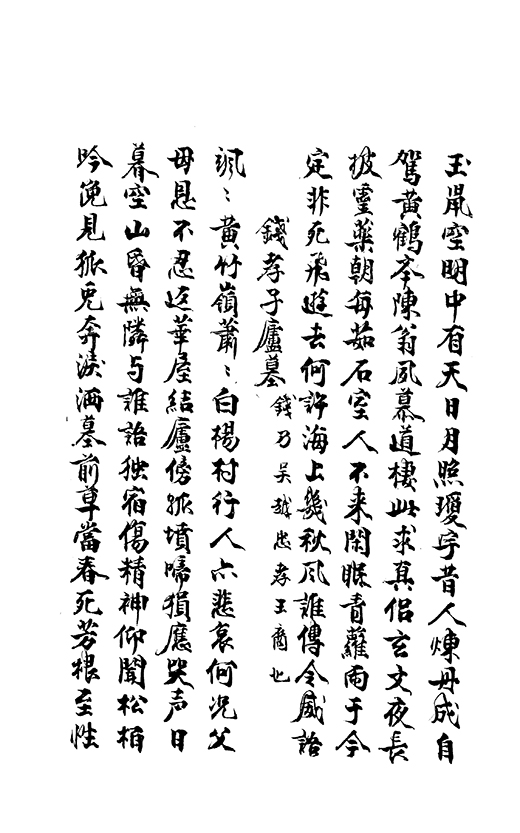 玉空明中有天日月照瓊宇昔人煉丹成自
駕黄鶴陳翁夙慕道棲此求真侣玄文夜長
披靈藥朝每茹石室人不来閑睇青蘿雨于今
定非死飛遊去何許海上幾秋风誰傳令威語
錢孝子廬墓 錢乃吴越忠孝王裔也
颯〻黄竹嶺蕭〻白楊村行人亦悲哀何况父
母恩不忍返華屋結廬傍孤墳啼猿應哭声日
暮空山昏無隣与誰語独宿傷精神仰聞松柏
吟俛見狐兎奔淚洒墓前草當春死芳根至性